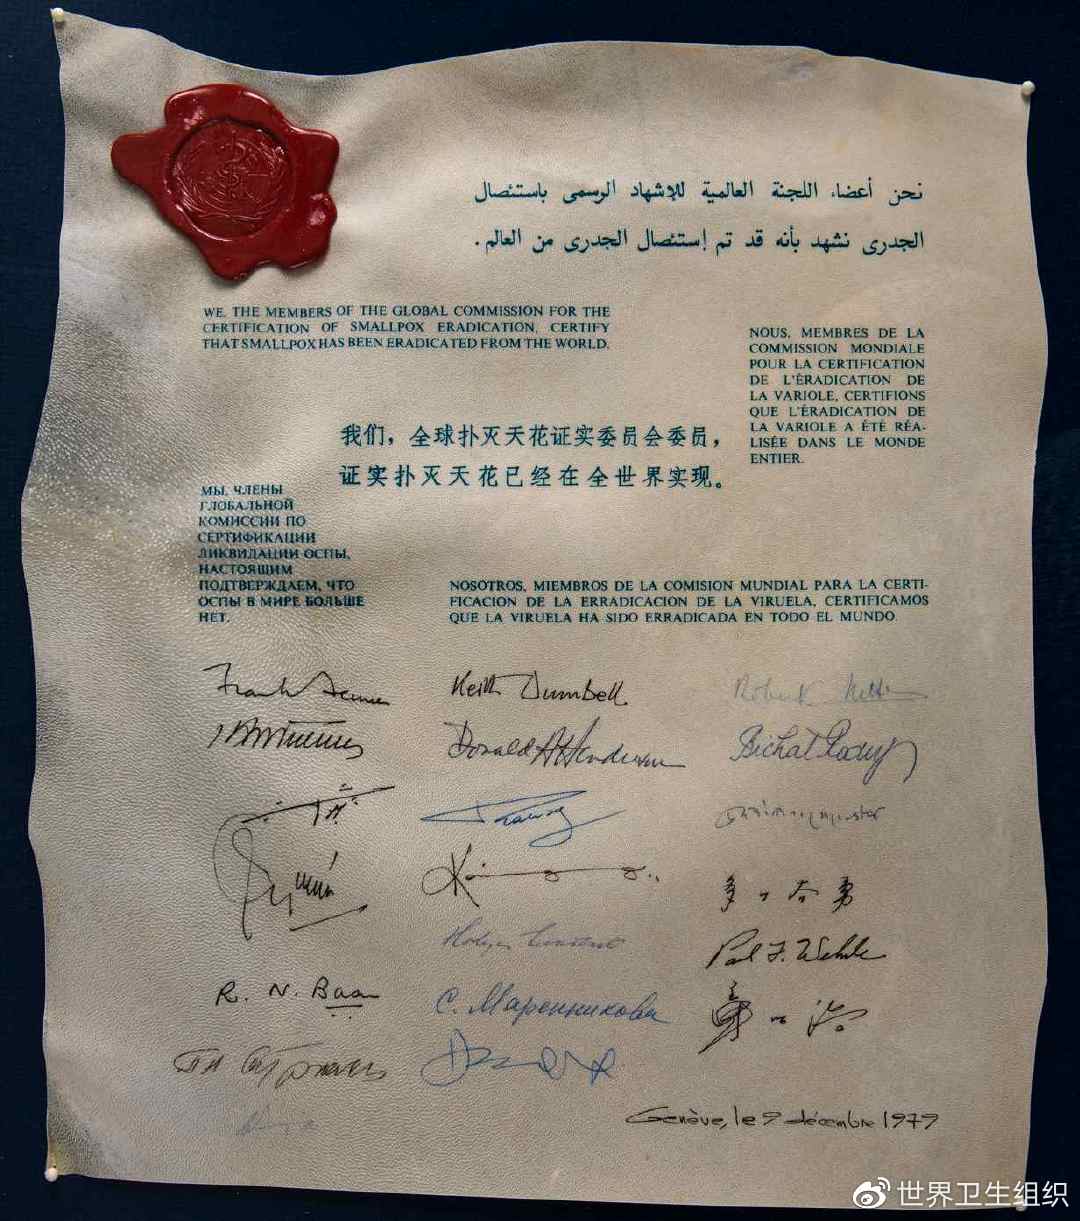 نحن أعضاء اللجنة العالمية للإشهاد الرسمى باستئصال
الجدرى نشهد بأنه قد تم إستئصال الجدرى من العالم .
WE, THE MEMBERS OF THE GLOBAL COMMISSION FOR THE
CERTIFICATION OF SMALLPOX ERADICATION, CERTIFY
THAT SMALLPOX HAS BEEN ERADICATED FROM THE WORLD.
NOUS, MEMBRES DE LA
COMMISSION MONDIALE
POUR LA CERTIFICATION
DE L'ÉRADICATION DE
LA VARIOLE, CERTIFIONS
QUE L'ÉRADICATION DE
LA VARIOLE A ÉTÉ RÉA-
LISÉE DANS LE MONDE
ENTIER.
我们，全球扑灭天花证实委员会委员，
证实扑灭天花已经在全世界实现。
МЫ, ЧЛЕНЫ
ГЛОБАЛЬНОЙ
КОМИССИИ ПО
СЕРТИФИКАЦИИ
ЛИКВИДАЦИИ ОСПЫ,
НАСТОЯЩИМ
ПОДТВЕРЖДАЕМ, ЧТО
ОСПЫ В МИРЕ БОЛЬШЕ
НЕТ.
NOSOTROS, MIEMBROS DE LA COMISION MUNDIAL PARA LA CERTI-
FICACION DE LA ERRADICACION DE LA VIRUELA, CERTIFICAMOS
QUE LA VIRUELA HA SIDO ERRADICADA EN TODO EL MUNDO.
Frank Fenner Keith Dumbell Robert
Donald A Henderson
Paul F. Wehrle
R. N. Basu С. Маренникова
Genève, le 9 décembre 1979
世界卫生组织